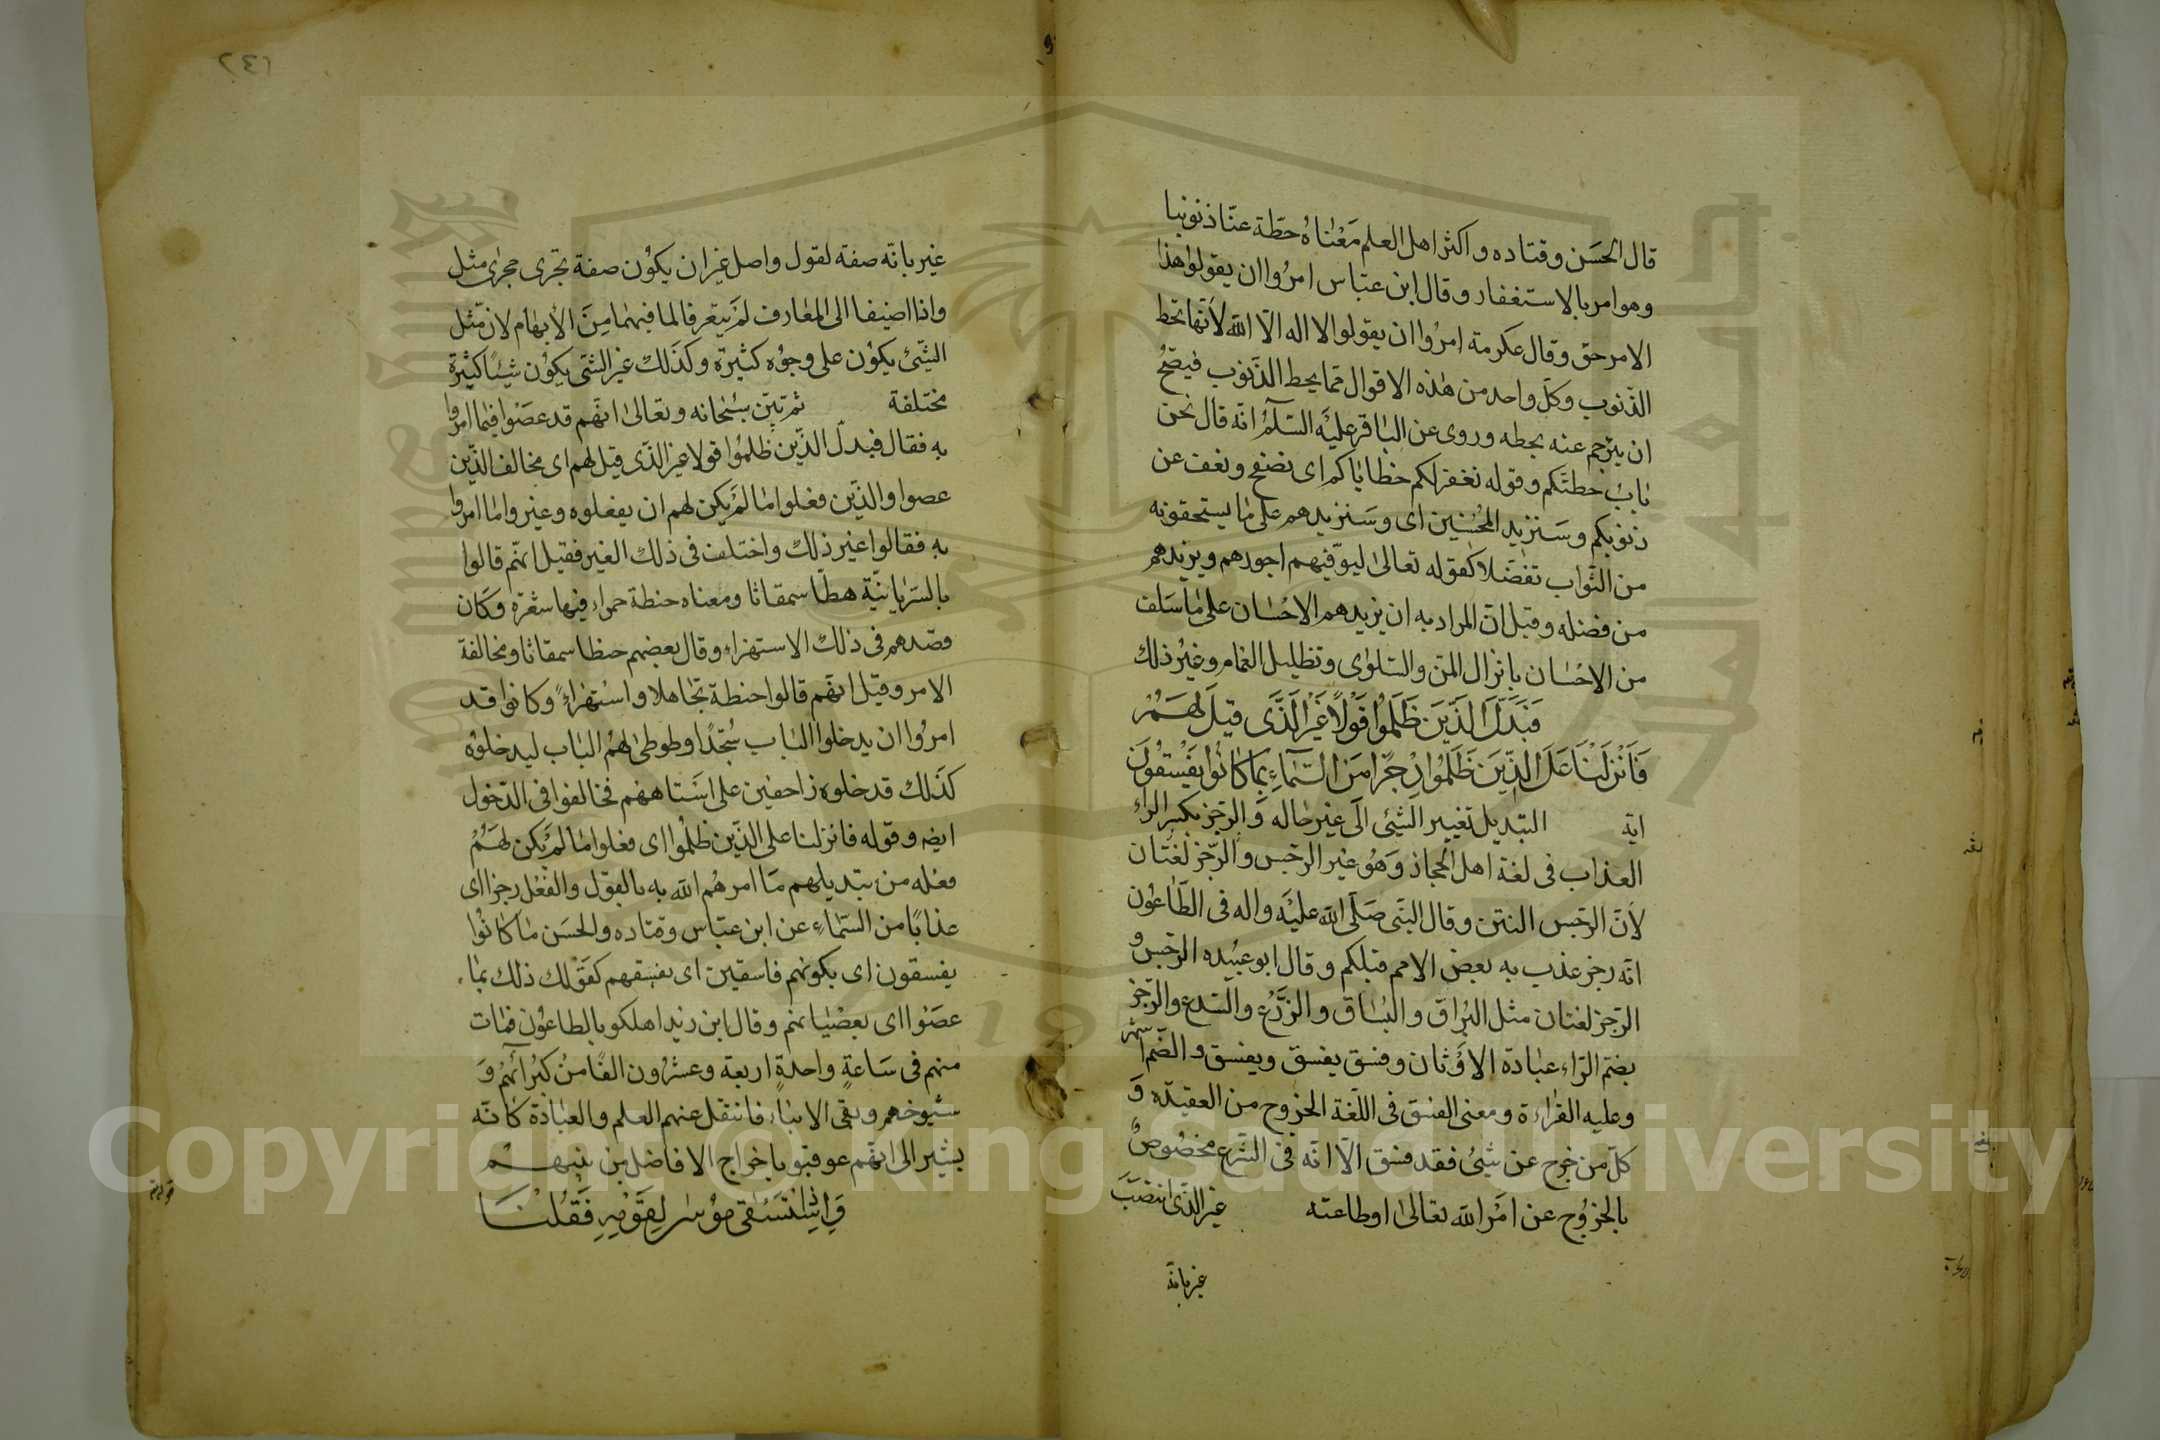 قال الحسن وقتاده واكثر اهل العلم معناه حطّة عنّا ذنوبنا
وهو امر بالاستغفار وقال ابن عبّاس امروا ان يقولوا هذا
الامر حق وقال عكرمة امروا ان يقولوا لا اله الّا الله لانّها تحط
الذّنوب وكلّ واحد من هذه الاقوال ممّا يحط الذّنوب فيصحّ
ان يترجم عنه بحطه وروى عن الباقر عليه السّلم انّه قال نحن
باب حطتكم وقوله نغفر لكم خطاياكم اى نصفح ونعف عن
ذنوبكم وسنزيد المحسنين اى وسنزيدهم على ما يستحقونه
من الثّواب تفضّلا كقوله تعالى ليوفّيهم اجورهم ويزيدهم
من فضله وقيل انّ المراد به ان يزيدهم الاحسان على ما سلف
من الاحسان بانزال المنّ والسّلوى وتظليل الغمام وغير ذلك
فَبَدَّلَ الَّذينَ ظَلَمُوا قَوْلًا غَيْرَ الَّذَى قيلَ لَهُمْ
فَاَنْزَلْنَا عَلَى الَّذينَ ظَلَمُوا رِجْزًا مِنَ السَّمَاءِ بِمَا كَانُوا يَفْسُقُونَ
اية التبديل تغيير الشّيئ الى غير حاله والرّجز بكسر الرّاء
العذاب فى لغة اهل الحجاز وهو غير الرّجس والرّجز لغتان
لانّ الرّجس النتن وقال النّبى صلّى الله عليه واله فى الطّاعون
انّه رجز عذب به بعض الامم قبلكم وقال ابو عبيده الرّجس و
الرّجز لغتان مثل البزاق والبساق والزّدع والسّدع والرّجز
بضم الرّاء عبادة الاوثان وفسق يفسق ويفسق والضّم اشهر
وعليه القراءة ومعنى الفسق فى اللّغة الخروج من العقيدة و
كلّ من خرج عن شيئ فقد فسق الّا انّه فى الشّرع مخصوص
بالخروج عن امر الله تعالى او طاعته غير الذّى انتصب
غير بانّه
غير بانّه صفة لقول واصل غير ان يكون صفة تجرى مجرى مثل
واذا اضيفا الى المعارف لم يتعرفا لما فيهما من الابهام لانّ مثل
الشّيئ يكون على وجوه كثيرة وكذلك غير الشّى يكون شيئًا كثيرة
مختلفة ثم تبيّن سبحانه وتعالى انّهم قد عصوا فيما امروا
به فقال فبدلّ الذّين ظلموا قولا غير الذّى قيل لهم اى مخالف الذّين
عصوا والذّين فعلوا ما لم يكن لهم ان يفعلوه وغيروا ما امروا
به فقالوا غير ذلك واختلف فى ذلك الغير فقيل انهّم قالوا
بالسّريانيّة هطا سمقاثا ومعناه حنطة حمراء فيها شعرة وكان
قصدهم فى ذلك الاستهزاء وقال بعضهم حنطا سمقاثا ومخالفة
الامر وقيل انّهم قالوا حنطة تجاهلا واستهزاءً وكانوا قد
امروا ان يدخلوا الباب سجّدًا وطوطى لهم الباب ليدخلوه
كذلك قدخلوه زاحفين على استاههم فخالفوا فى الدّخول
ايضه وقوله فانزلنا على الذّين ظلموا اى فعلوا ما لم يكن لهم
فعله من تبديلهم ما امرهم الله به بالقول والفعل رجزا اى
عذابًا من السّماء عن ابن عبّاس وقتاده والحسن ما كانوا
يفسقون اى بكونهم فاسقين اى بفسقهم كقولك ذلك بما
عصوا اى بعصيانهم وقال ابن زيد اهلكو بالطاعون فمات
منهم فى ساعةٍ واحدةٍ اربعة وعشرون الفًا من كبرائهم و
شيوخهم وبقى الابناء فانتقل عنهم العلم والعبادة كانّه
يشير الى انّهم عوقبو باخراج الافاضل من بينهم
وَاِذِ اسْتَسْقى مُوسٰى لِقَوْمِهِ فَقُلْنَا
Copyright © King Saud University